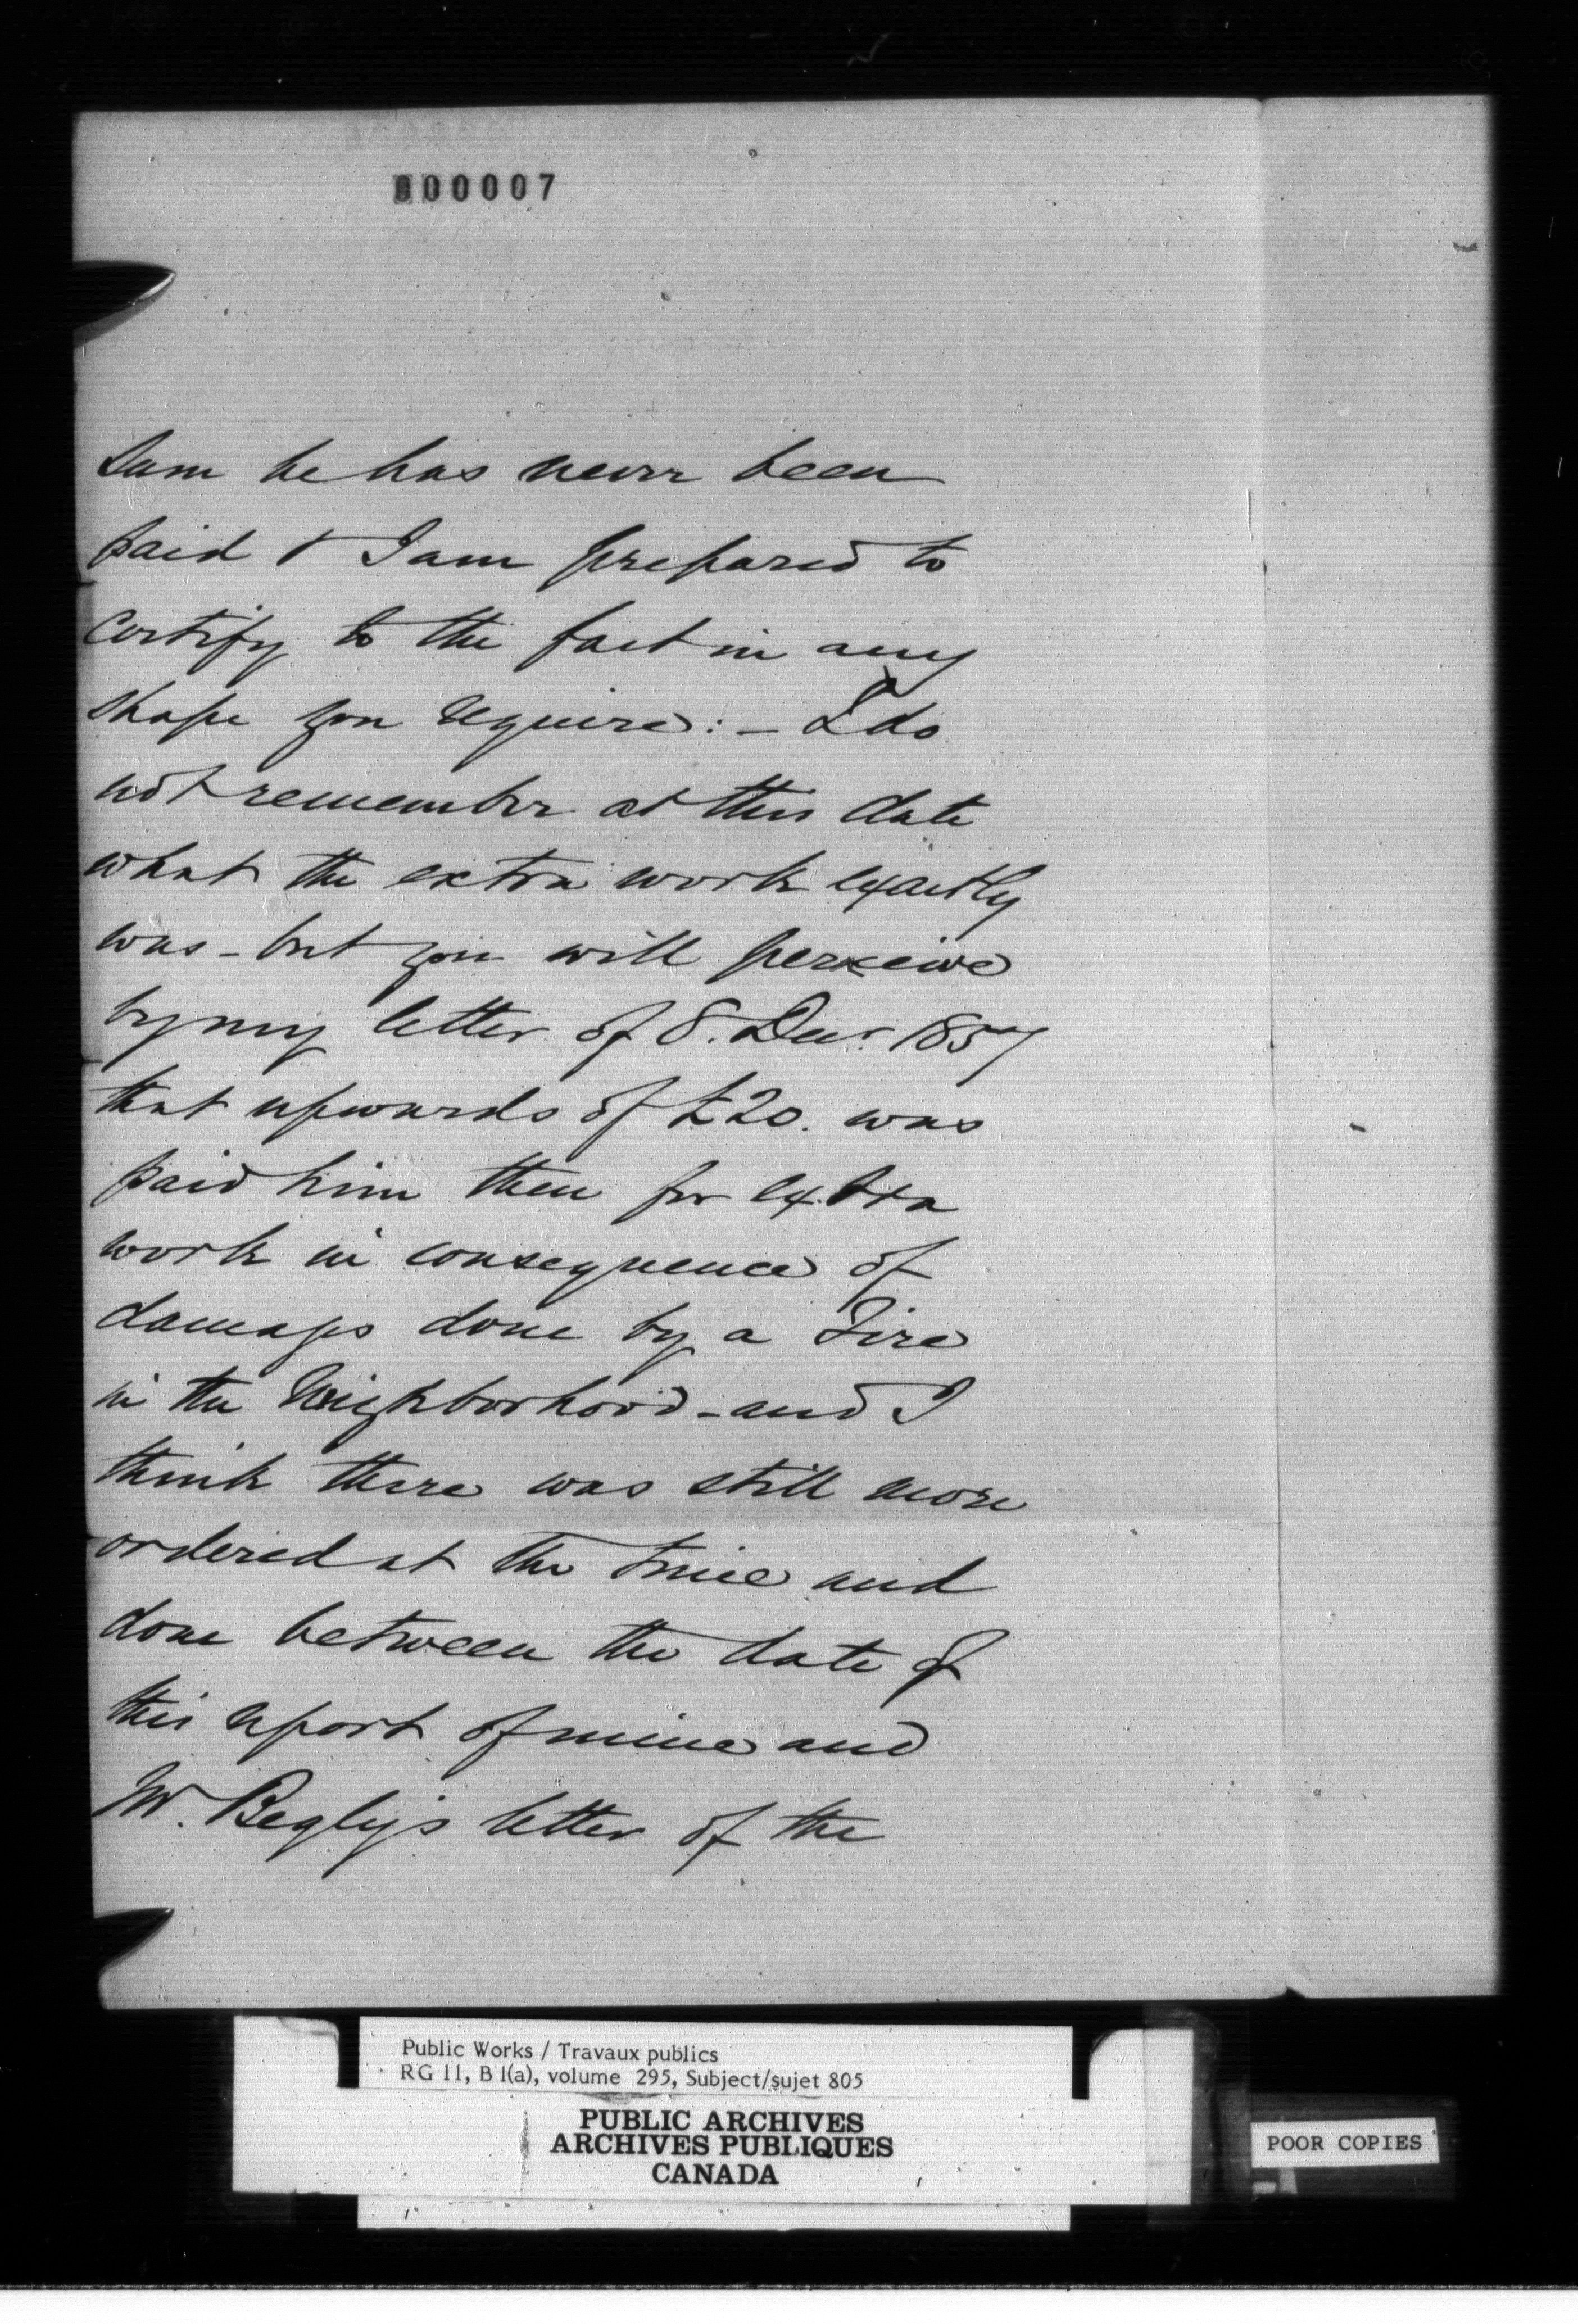 000007
Sum he has never been
paid & I am prepared to
certify to the fact in any
shape you require: - I do
not remember at this date
what the extra work exactly
was - but you will perceive
by my letter of 8. Decr. 1857
that upwards of £20. was
paid him then for extra
work in consequence of
damages done by a Fire
in the Neighborhood - and I
think there was still more
ordered at the time and
done between the date of
this report of mine and
Mr. Begly's letter of the
Public Works / Travaux publics
RG 11, B 1(a), volume 295, Subject/sujet 805
PUBLIC ARCHIVES
ARCHIVES PUBLIQUES
CANADA
POOR COPIES